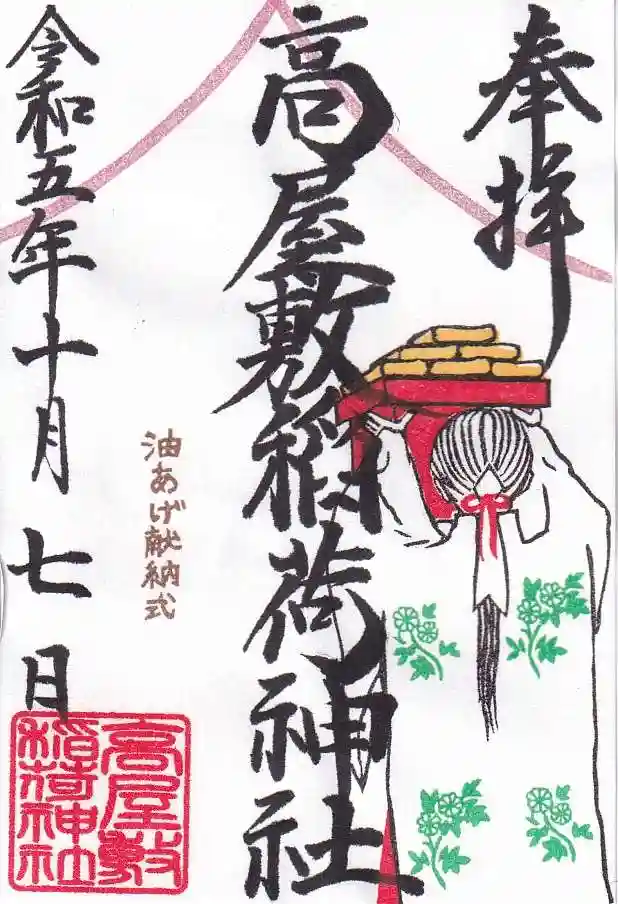 奉拝
高屋敷稲荷神社
油あげ献納式
令和五年十月七日
高屋敷
稲荷神社